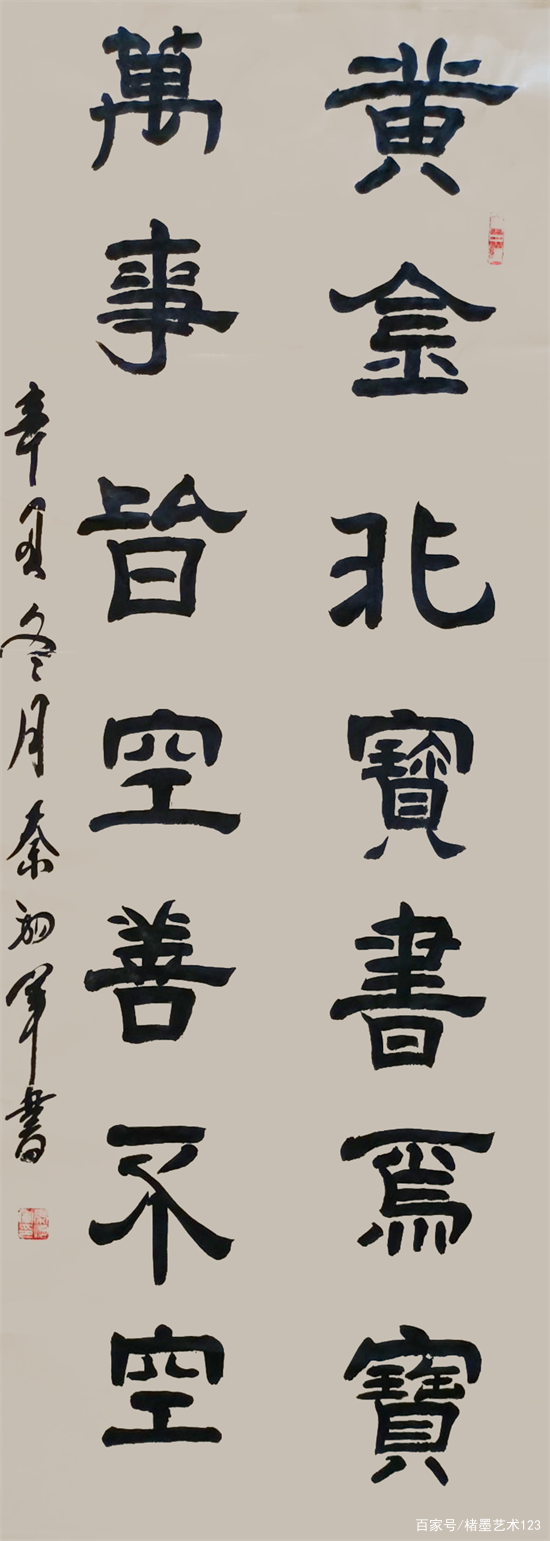 黄金非寶書為寶
萬事皆空善不空
辛丑冬月秦初军書
百家号/楮墨艺术123